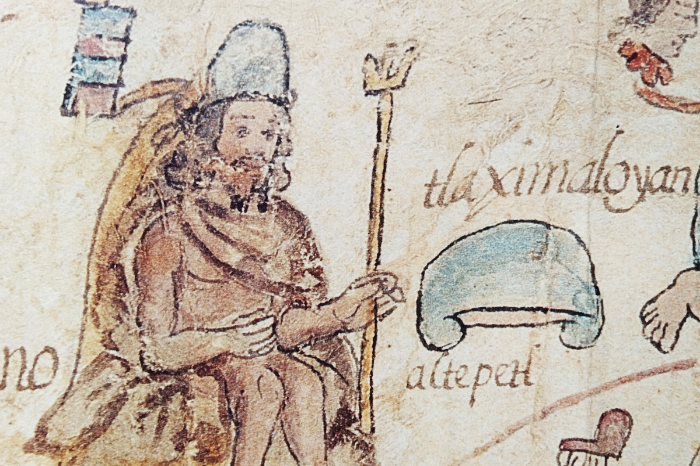 tlaximaloyan
no
altepetl